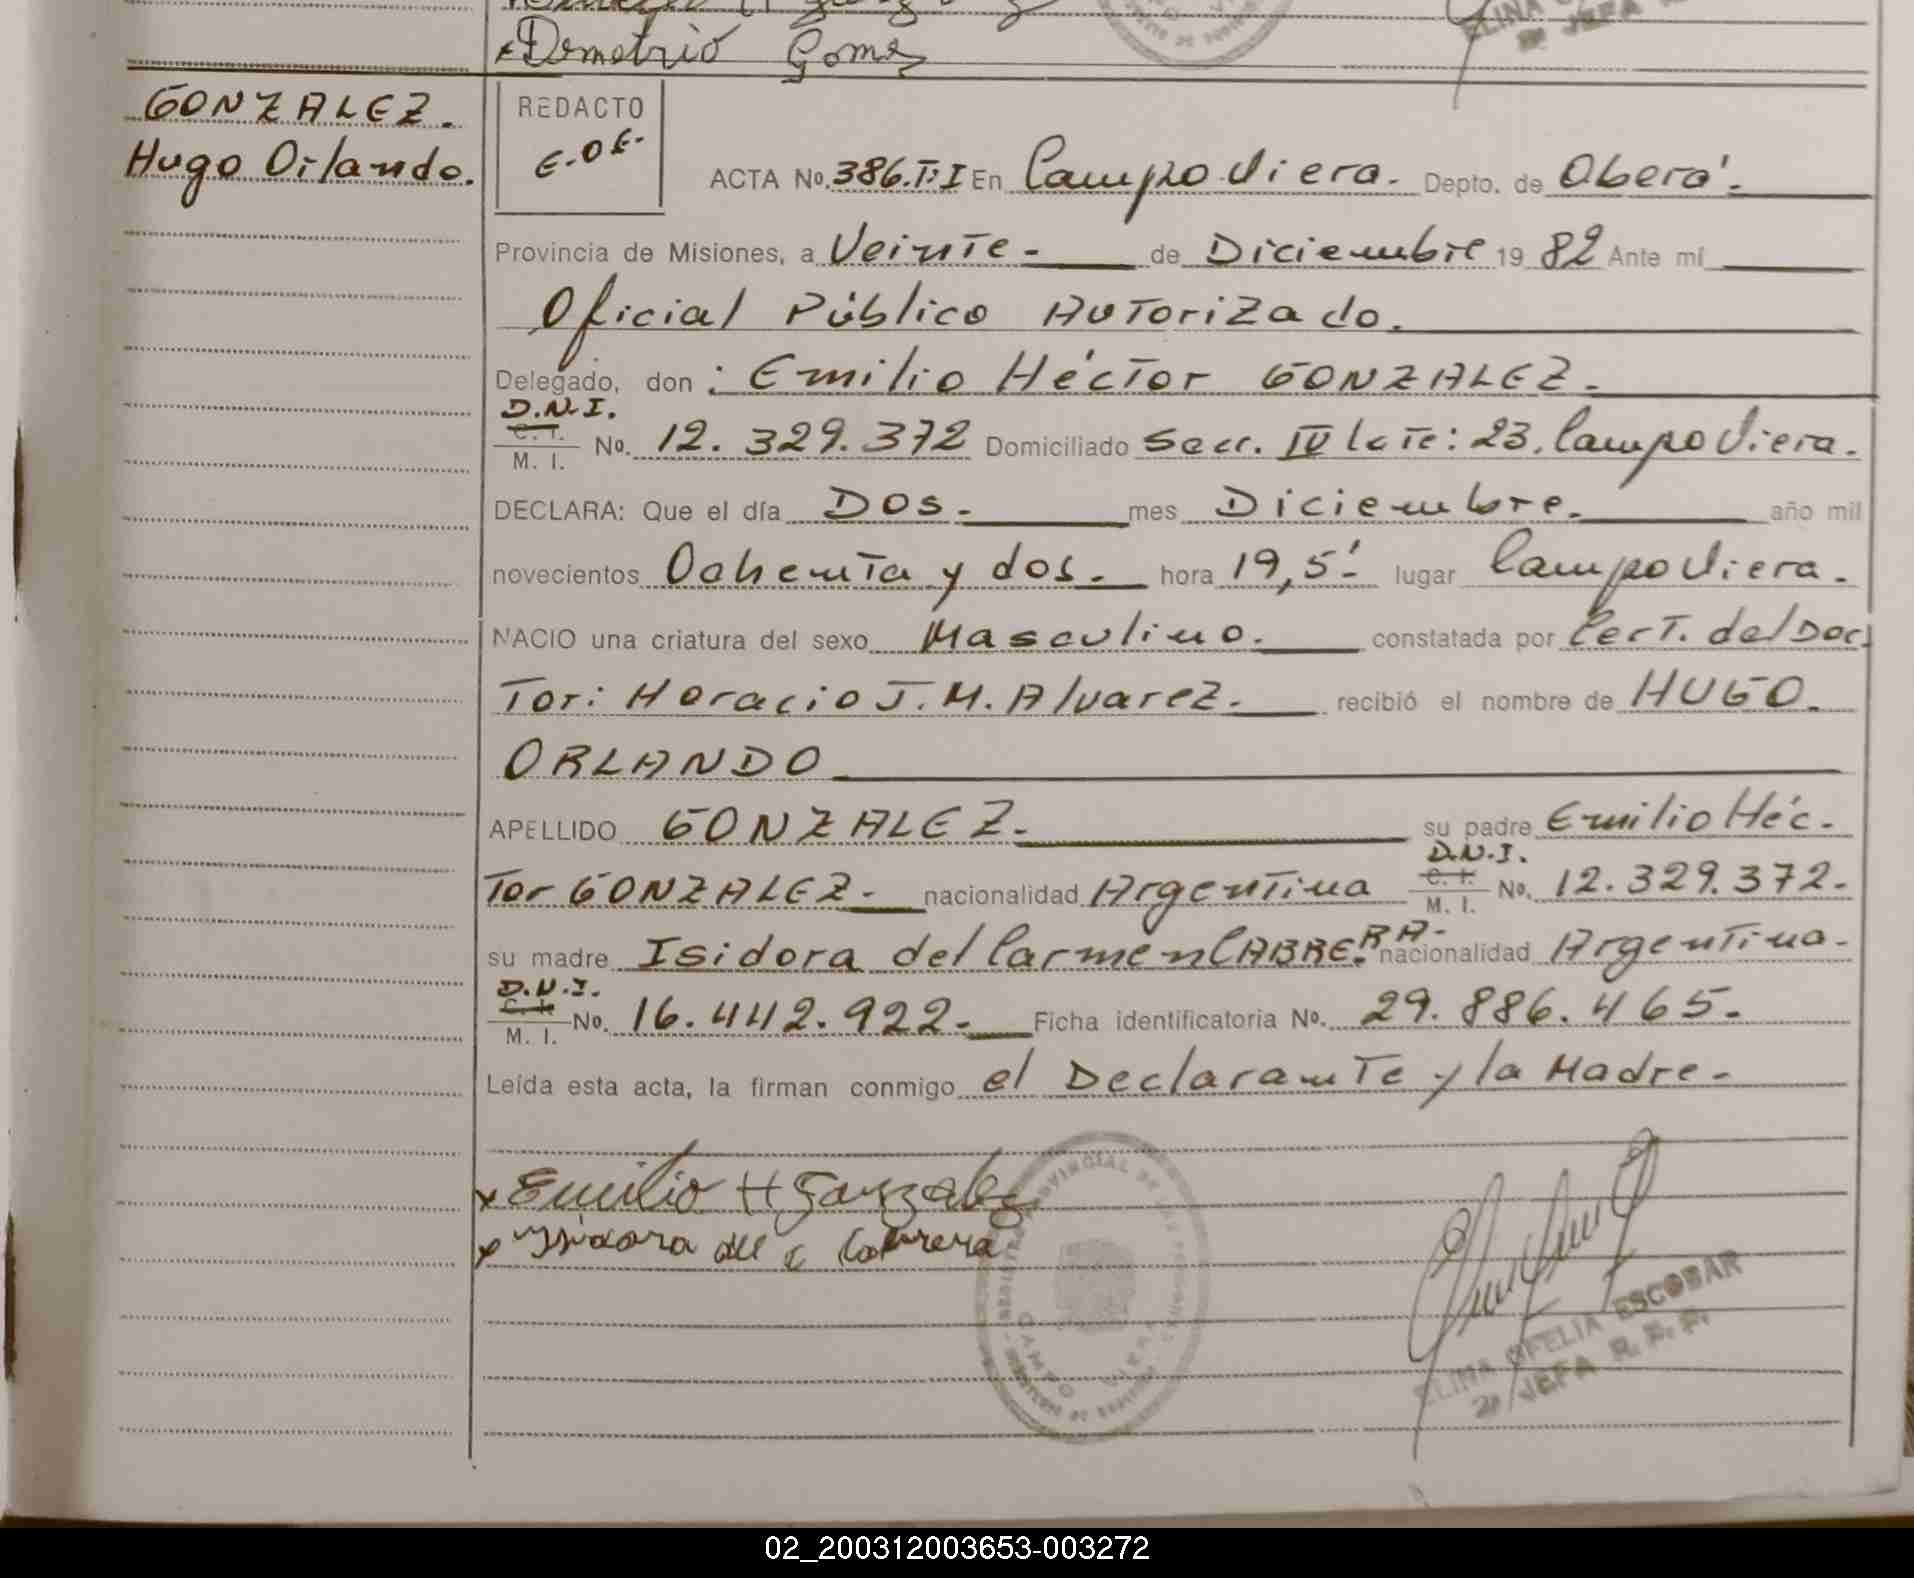 Demetrio Gome
ELINA
JEFA
GONZALEZ.
Hugo Orlando.
REDACTO
E.O.E.
ACTA No. 386.T:I En Campo Viera. Depto. de Oberá.
Provincia de Misiones, a Veinte. de Diciembre 1982 Ante mí
Oficial Público Autorizado.
Delegado, don: Emilio Héctor GONZALEZ.
D.N.I.
C. I.
M. I. No. 12.329.372 Domiciliado Secc. IV lote: 23. Campo Viera.
DECLARA: Que el día Dos. mes Diciembre. año mil
novecientos Ochenta y dos. hora 19,5' lugar Campo Viera.
NACIO una criatura del sexo Masculino. constatada por Cert. del Doc
Tor: Horacio J. M. Alvarez. recibió el nombre de HUGO.
ORLANDO
APELLIDO GONZALEZ. su padre Emilio Héc.
Tor GONZALEZ. nacionalidad Argentina D.N.I. C. I. M. I. No. 12.329.372.
su madre Isidora del Carmen CABRERA. nacionalidad Argentina.
D.N.I.
C. I.
M. I. No. 16.442.922. Ficha identificatoria No. 29.886.465.
Leída esta acta, la firman conmigo el Declarante y la Madre.
x Emilio H Gonzalez
x Isidora del C Cabrera
PROVINCIAL DE LAS PERSONAS
CAMPO VIERA
ELINA OFELIA ESCOBAR
2ª JEFA R. P. P.
02_200312003653-003272